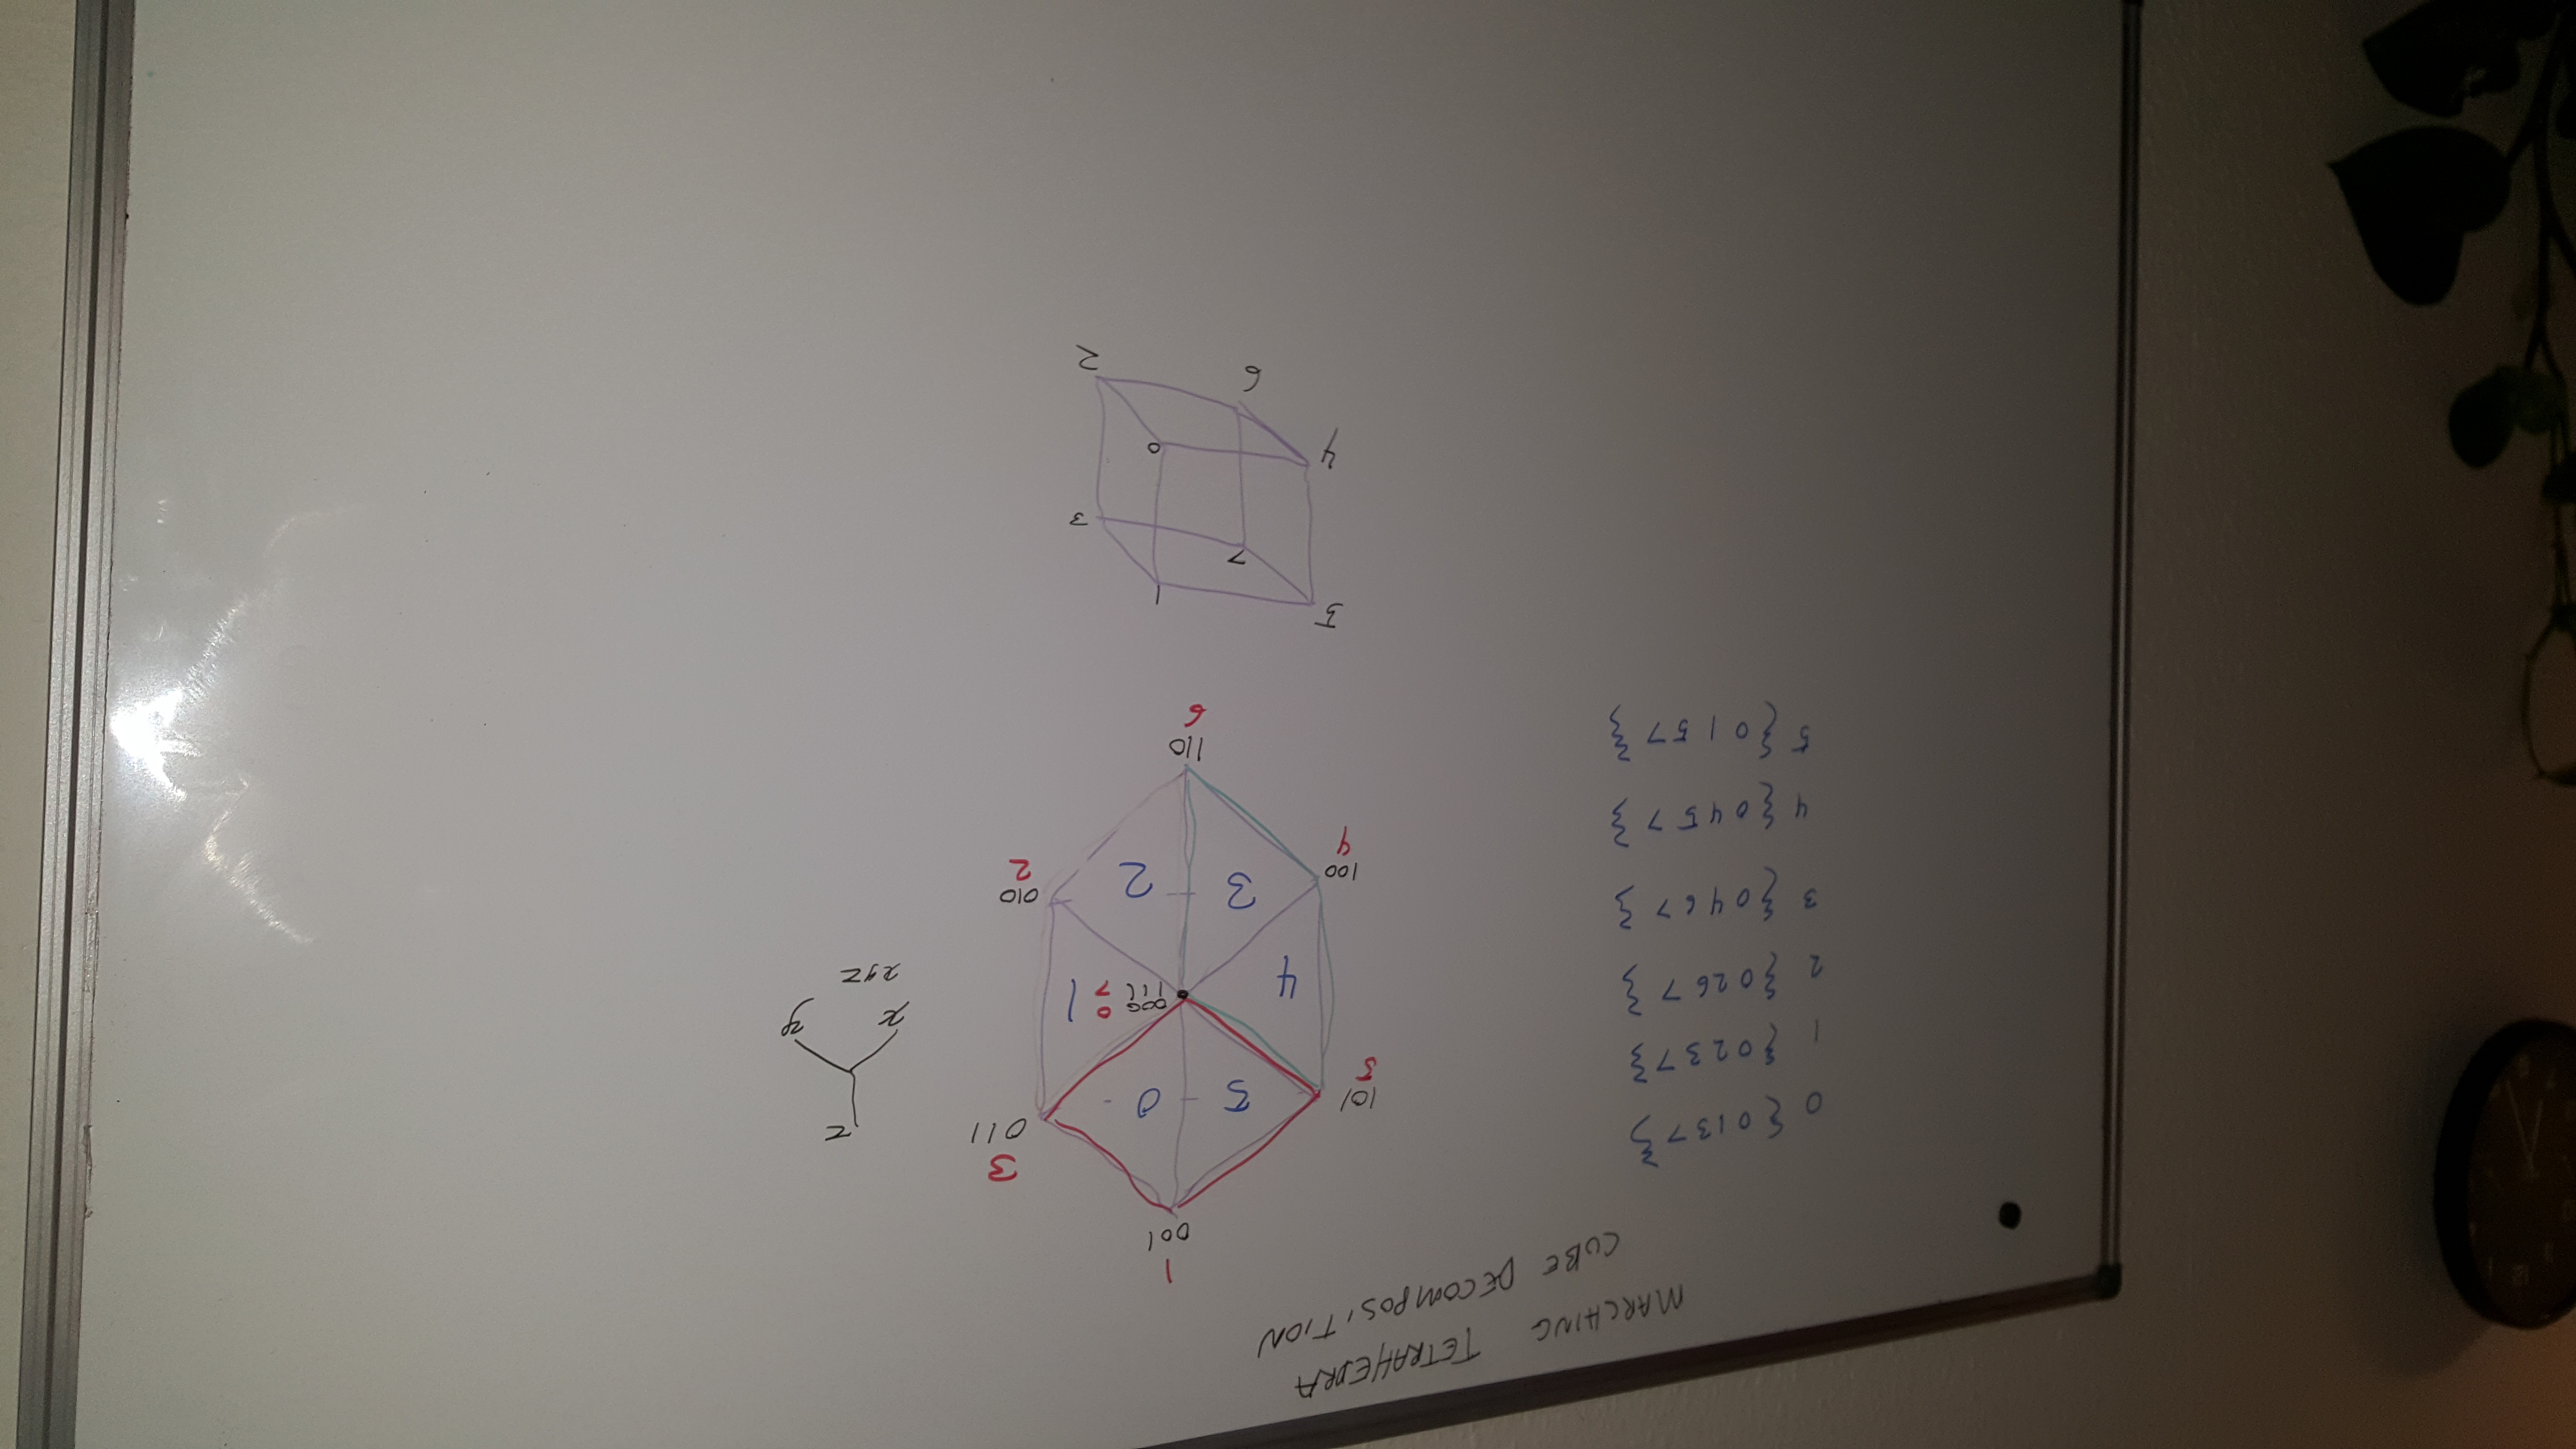 MARCHING TETRAHEDRA
CUBE DECOMPOSITION
0 { 0 1 3 7 }
1 { 0 2 3 7 }
2 { 0 2 6 7 }
3 { 0 4 6 7 }
4 { 0 4 5 7 }
5 { 0 1 5 7 }
1
001
3
011
101
5
5
0
000 0
111 7
4
1
3
2
100
4
010
2
110
6
z
x
y
xyz
5
1
7
3
4
0
6
2